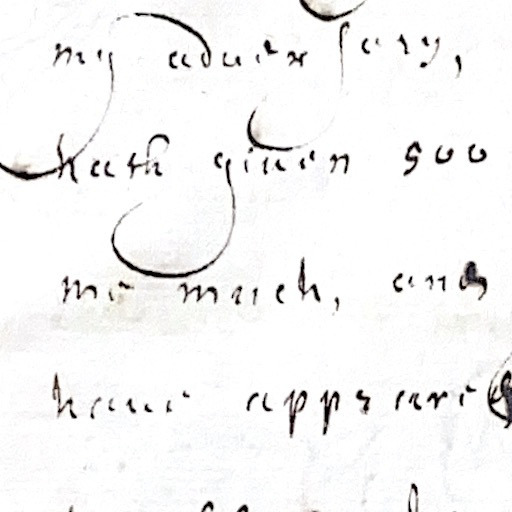 my aduersary,
hath giuen 500
me much, and
haue appeared